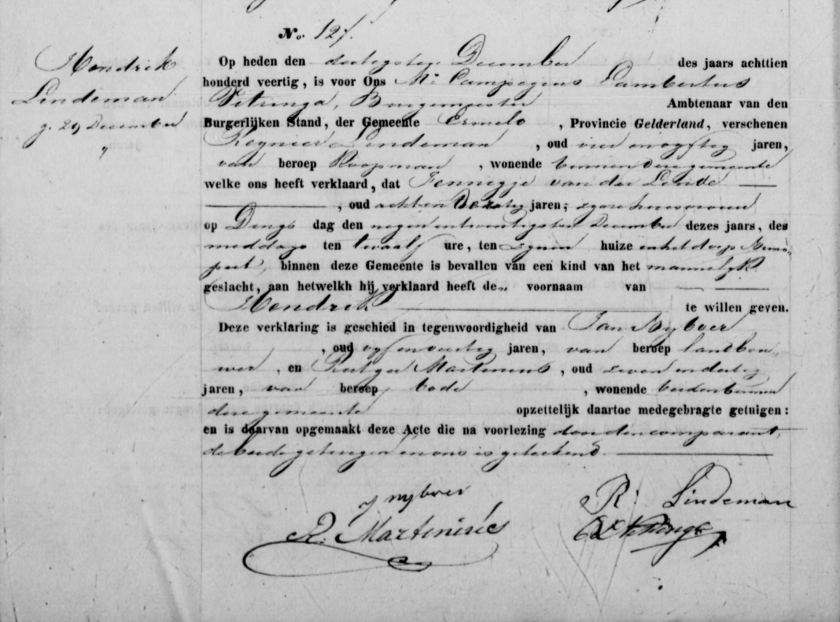 No. 127.
Hendrik
Lindeman
g. 29 December
Op heden den dertigsten December des jaars achttien
honderd veertig, is voor Ons Mr Campegius Lambertus
Vitringa, Burgemeester Ambtenaar van den
Burgerlijken Stand, der Gemeente Ermelo, Provincie Gelderland, verschenen
Reynier Lindeman, oud vier en vyftig jaren,
van beroep Koopman, wonende binnen deze gemeente
welke ons heeft verklaard, dat Jennigje van der Linde
, oud acht en dertig jaren, zyne huisvrouw
op Dings dag den negen en twintigsten December dezes jaars, des
middags ten twaalf ure, ten zynen huize
, binnen deze Gemeente is bevallen van een kind van het mannelyk
geslacht, aan hetwelkh hij verklaard heeft den voornaam van
Hendrik te willen geven.
Deze verklaring is geschied in tegenwoordigheid van Jan Nyboer
, oud vyf en veertig jaren, van beroep landbou-
wer, en Rutger Martinius, oud zeven en dertig
jaren, van beroep bode, wonende beiden binnen
deze gemeente opzettelijk daartoe medegebragte getuigen:
en is daarvan opgemaakt deze Acte die na voorlezing door den comparant,
de beide getuigen en ons is geteekend.
J nyboer
R: Lindeman
R. Martinius
Vitringa